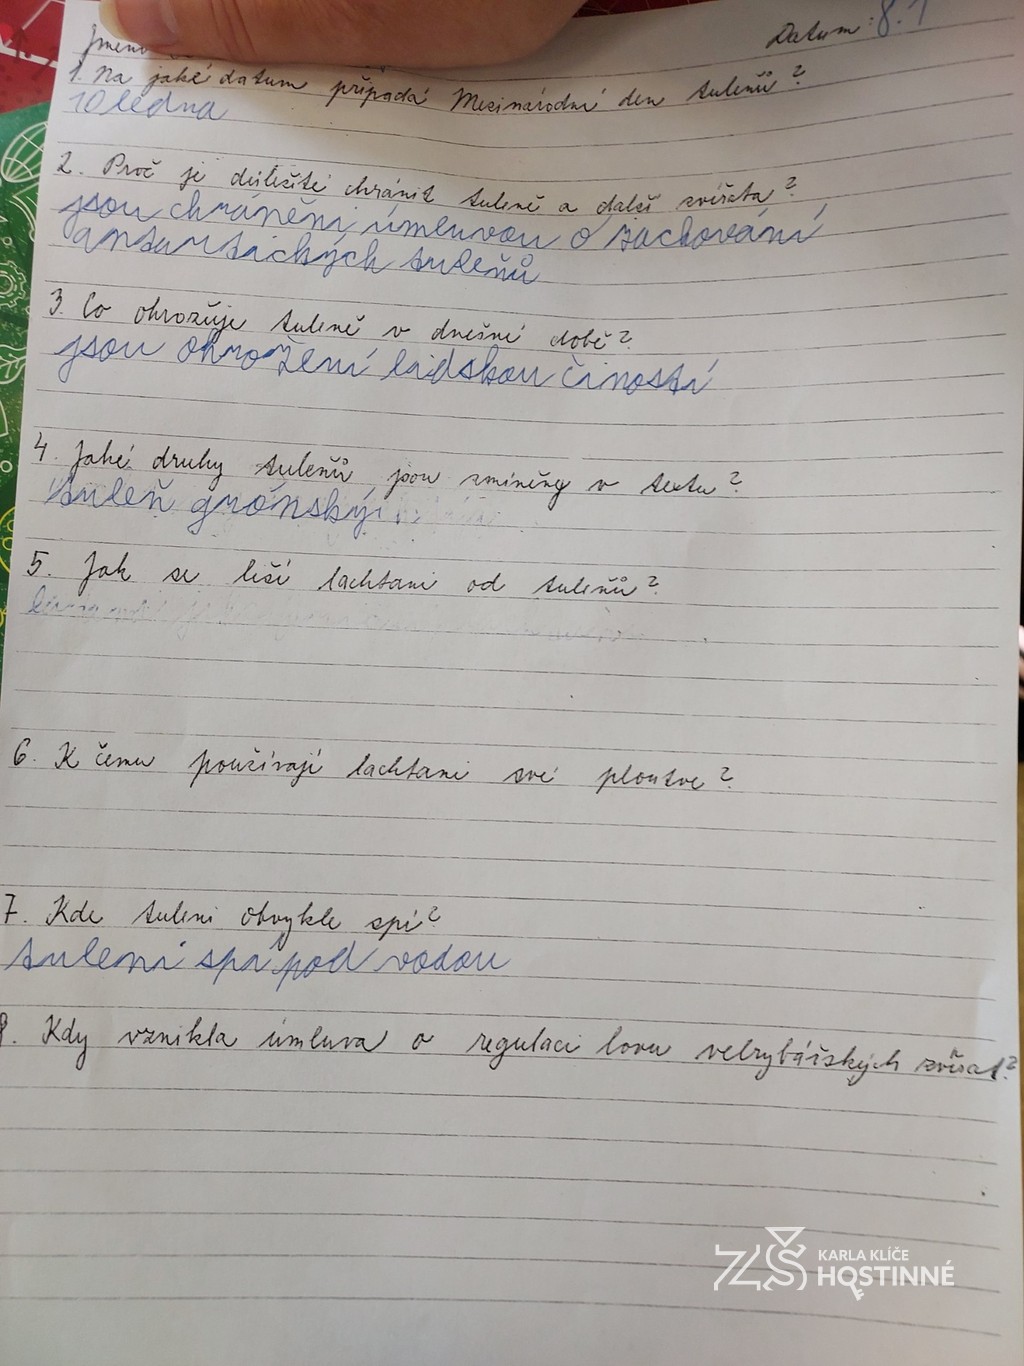 Jméno
Datum: 8.1
1. Na jaké datum připadá Mezinárodní den tuleňů?
10 ledna
2. Proč je důležité chránit tuleně a další zvířata?
jsou chráněni úmluvou o zachování
antartických tuleňů
3. Co ohrožuje tuleně v dnešní době?
jsou ohrožení lidskou čiností
4. Jaké druhy tuleňů jsou zmíněny v textu?
tuleň grónský
5. Jak se liší lachtani od tuleňů?
6. K čemu používají lachtani své ploutve?
7. Kde tuleni obvykle spí?
tuleni spí pod vodou
8. Kdy vznikla úmluva o regulaci lovu velrybářských zvířat?
ZŠ KARLA KLÍČE
HOSTINNÉ